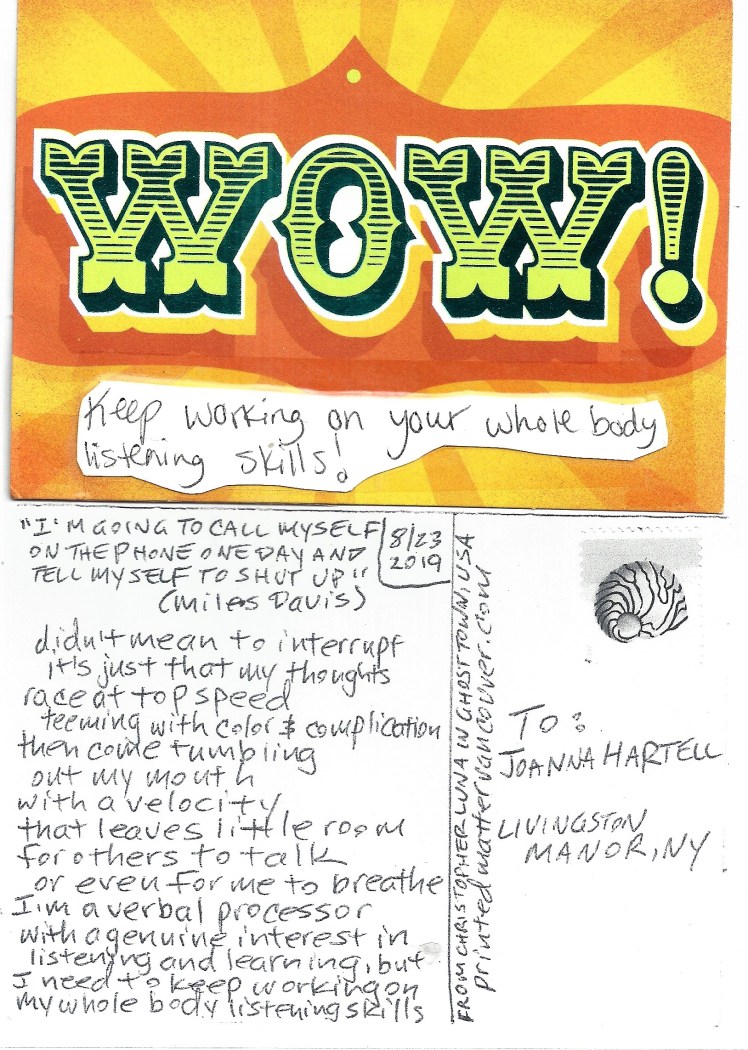 WOW!
Keep working on your whole body
listening skills!
"I'M GOING TO CALL MYSELF
ON THE PHONE ONE DAY AND
TELL MYSELF TO SHUT UP"
(Miles Davis)
8/23
2019
didn't mean to interrupt
it's just that my thoughts
race at top speed
teeming with color & complication
then come tumbling
out my mouth
with a velocity
that leaves little room
for others to talk
or even for me to breathe
I'm a verbal processor
with a genuine interest in
listening and learning, but
I need to keep working on
my whole body listening skills
FROM CHRISTOPHER LUNA IN GHOST TOWN, USA
printedmattervancouver.com
TO:
JOANNA HARTELL
LIVINGSTON
MANOR, NY